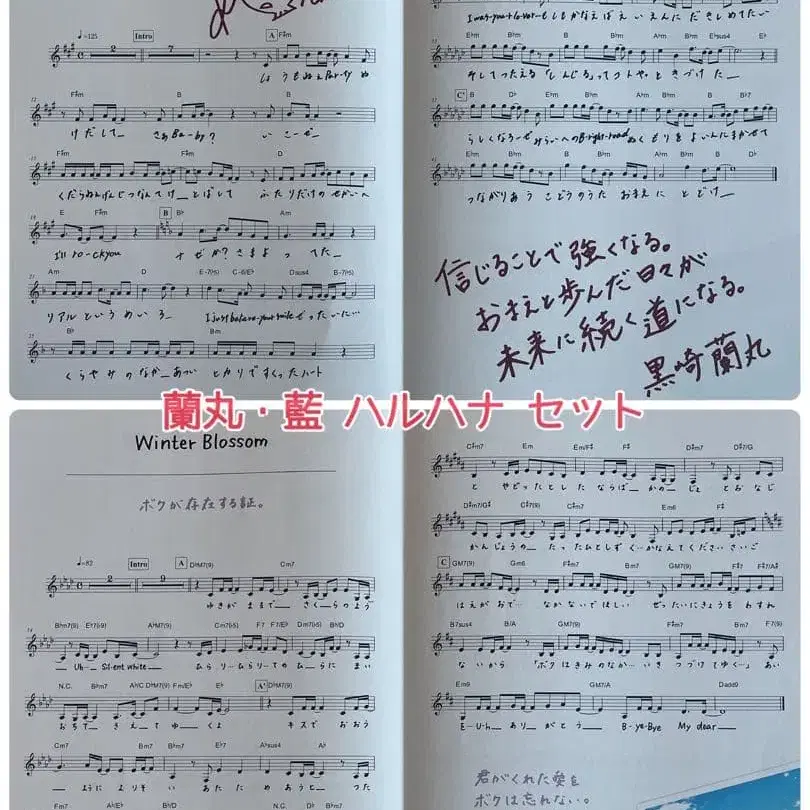 ♩=125 Intro 2 7 A F♯m
はもねえParty ぬ
F♯m B
けだして さぁBa-by? いこーぜ
F♯m D
くだらねんげんじつなんてけとばして ふたりだけのせかいへ
E F♯m B B♭ Am
I'll ro-ckyou なぜか?さまよってた
Am D E-7(♭5) C-6/E♭ Dsus4 B-7(♭5)
リアルというめいろ
B♭ Bm
くらやみのなか あつい ヒカリですくったハート
E♭m B♭m B B♭m A♭m B E♭sus4 E♭
そしてつたえる「しんじる」ってコトやっときづけた
C' B D♭ B♭m E♭m A♭m B♭m B B♭7
らしくなろーぜみらいへのB-right-road ぬくもりをよいんにまかせて
E♭m B♭m B B♭m A♭m B♭m B
つながりあうこどうのうた おまえにとどけ
信じることで強くなる。
おまえと歩んだ日々が
未来に続く道になる。
黒崎蘭丸
蘭丸・藍 ハルハナ セット
Winter Blossom
ボクが存在する証。
♩=82 Intro 2 9 A D♭M7(9) Cm7
ゆきがまるで さくらのよう
B♭m7(9) E♭7(9) A♭M7(9) Cm7(♭5) F7 F7/E♭ D♭M7(9) B♭/D
Uh Silent white ひらりひらりてのひらにまい
N.C. B♭m7 A♭/C D♭M7(9) Fm/E♭ E♭ A' D♭M7(9)
おちて きえてゆくよ キスでおおう
Cm7 B♭m7 B♭m7 Cm7 F7 B♭m7 A♭sus4 A♭
ようによりそい あたためあうと つた
Fm7 A♭/E♭ D♭M7 Cm7 N.C.
C♯m7 Em Em/F♯ F♯m D♯m7 D♯7/G
とやどったとしたならば かのじょとおなじ
D♯m7/G♯ C♯7(9) C♯m7 Em6 F♯
かんじょうの たったひとしずくかなえてくださいさいご
C GM7(9) Gm6 F♯m7 B7 Em7 F♯7 F♯7/A♯
はえがおで なかないでほしい ぜったいにきょうをわすれ
B7sus4 B/A GM7(9) Gm6 F♯m7 B7
ないから 「ボクはきみのなか いきつづけてゆく」あい
Em9 GM7/A Dadd9
E-U-h ありがとう B-ye-Bye My dear
君がくれた愛を
ボクは忘れない。